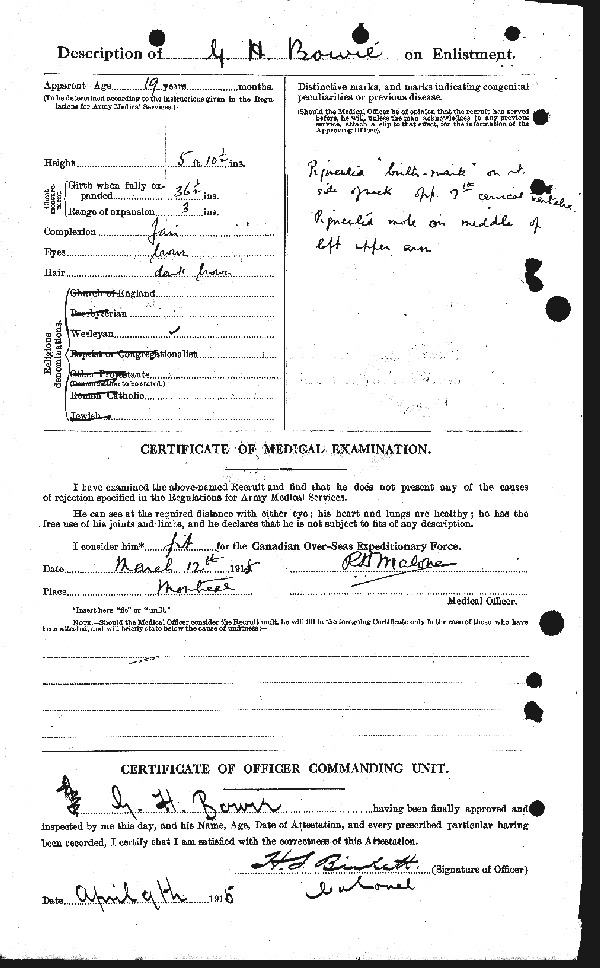 Description of G H Bowie on Enlistment.
Apparent Age 19 years months.
(To be determined according to the instructions given in the Regulations for Army Medical Services.)
Height 5 ft. 10½ ins.
Chest measurement
Girth when fully expanded 36½ ins.
Range of expansion 3 ins.
Complexion Fair
Eyes brown
Hair dark brown
Religious denominations.
Church of England
Presbyterian
Wesleyan ✓
Baptist or Congregationalist
Other Protestants
(Denomination to be stated.)
Roman Catholic
Jewish
Distinctive marks, and marks indicating congenital
peculiarities or previous disease.
(Should the Medical Officer be of opinion that the recruit has served
before, he will, unless the man acknowledges to any previous
service, attach a slip to that effect, for the information of the
Approving Officer).
Pigmented "birth-mark" on rt.
side of neck opp. 7th cervical vertebra.
Pigmented mole on middle of
left upper arm
CERTIFICATE OF MEDICAL EXAMINATION.
I have examined the above-named Recruit and find that he does not present any of the causes
of rejection specified in the Regulations for Army Medical Services.
He can see at the required distance with either eye; his heart and lungs are healthy; he has the
free use of his joints and limbs, and he declares that he is not subject to fits of any description.
I consider him* fit for the Canadian Over-Seas Expeditionary Force.
Date March 12th 1915
Place Montreal
Malone
Medical Officer.
*Insert here "fit" or "unfit."
NOTE.—Should the Medical Officer consider the Recruit unfit, he will fill in the foregoing Certificate only in the case of those who have
been attested, and will briefly state below the cause of unfitness:—
CERTIFICATE OF OFFICER COMMANDING UNIT.
G. H. Bowie having been finally approved and
inspected by me this day, and his Name, Age, Date of Attestation, and every prescribed particular having
been recorded, I certify that I am satisfied with the correctness of this Attestation.
(Signature of Officer)
Colonel
Date April 9th 1915